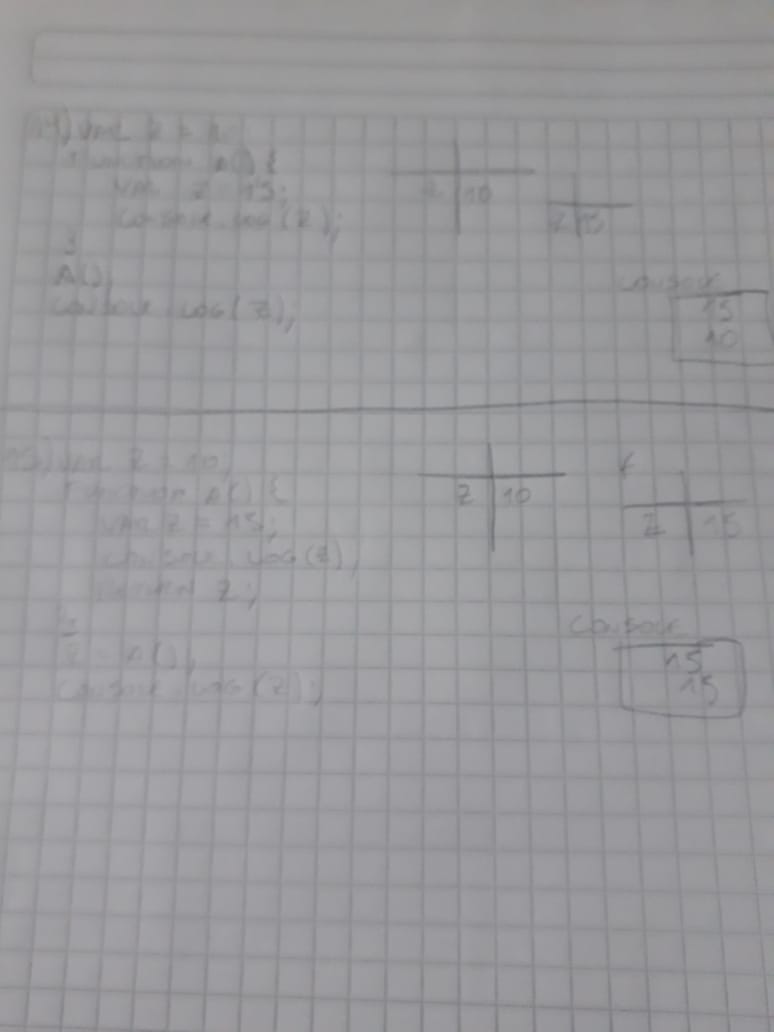 14) VAR Z = 10
FUNCTION A() {
VAR Z = 15;
CONSOLE.LOG(Z);
}
A();
CONSOLE.LOG(Z);
Z 10
Z 15
CONSOLE
15
10
15) VAR Z = 10;
FUNCTION A() {
VAR Z = 15;
CONSOLE.LOG(Z)
RETURN Z;
}
Z = A();
CONSOLE.LOG(Z);
Z 10
Z 15
CONSOLE
15
15